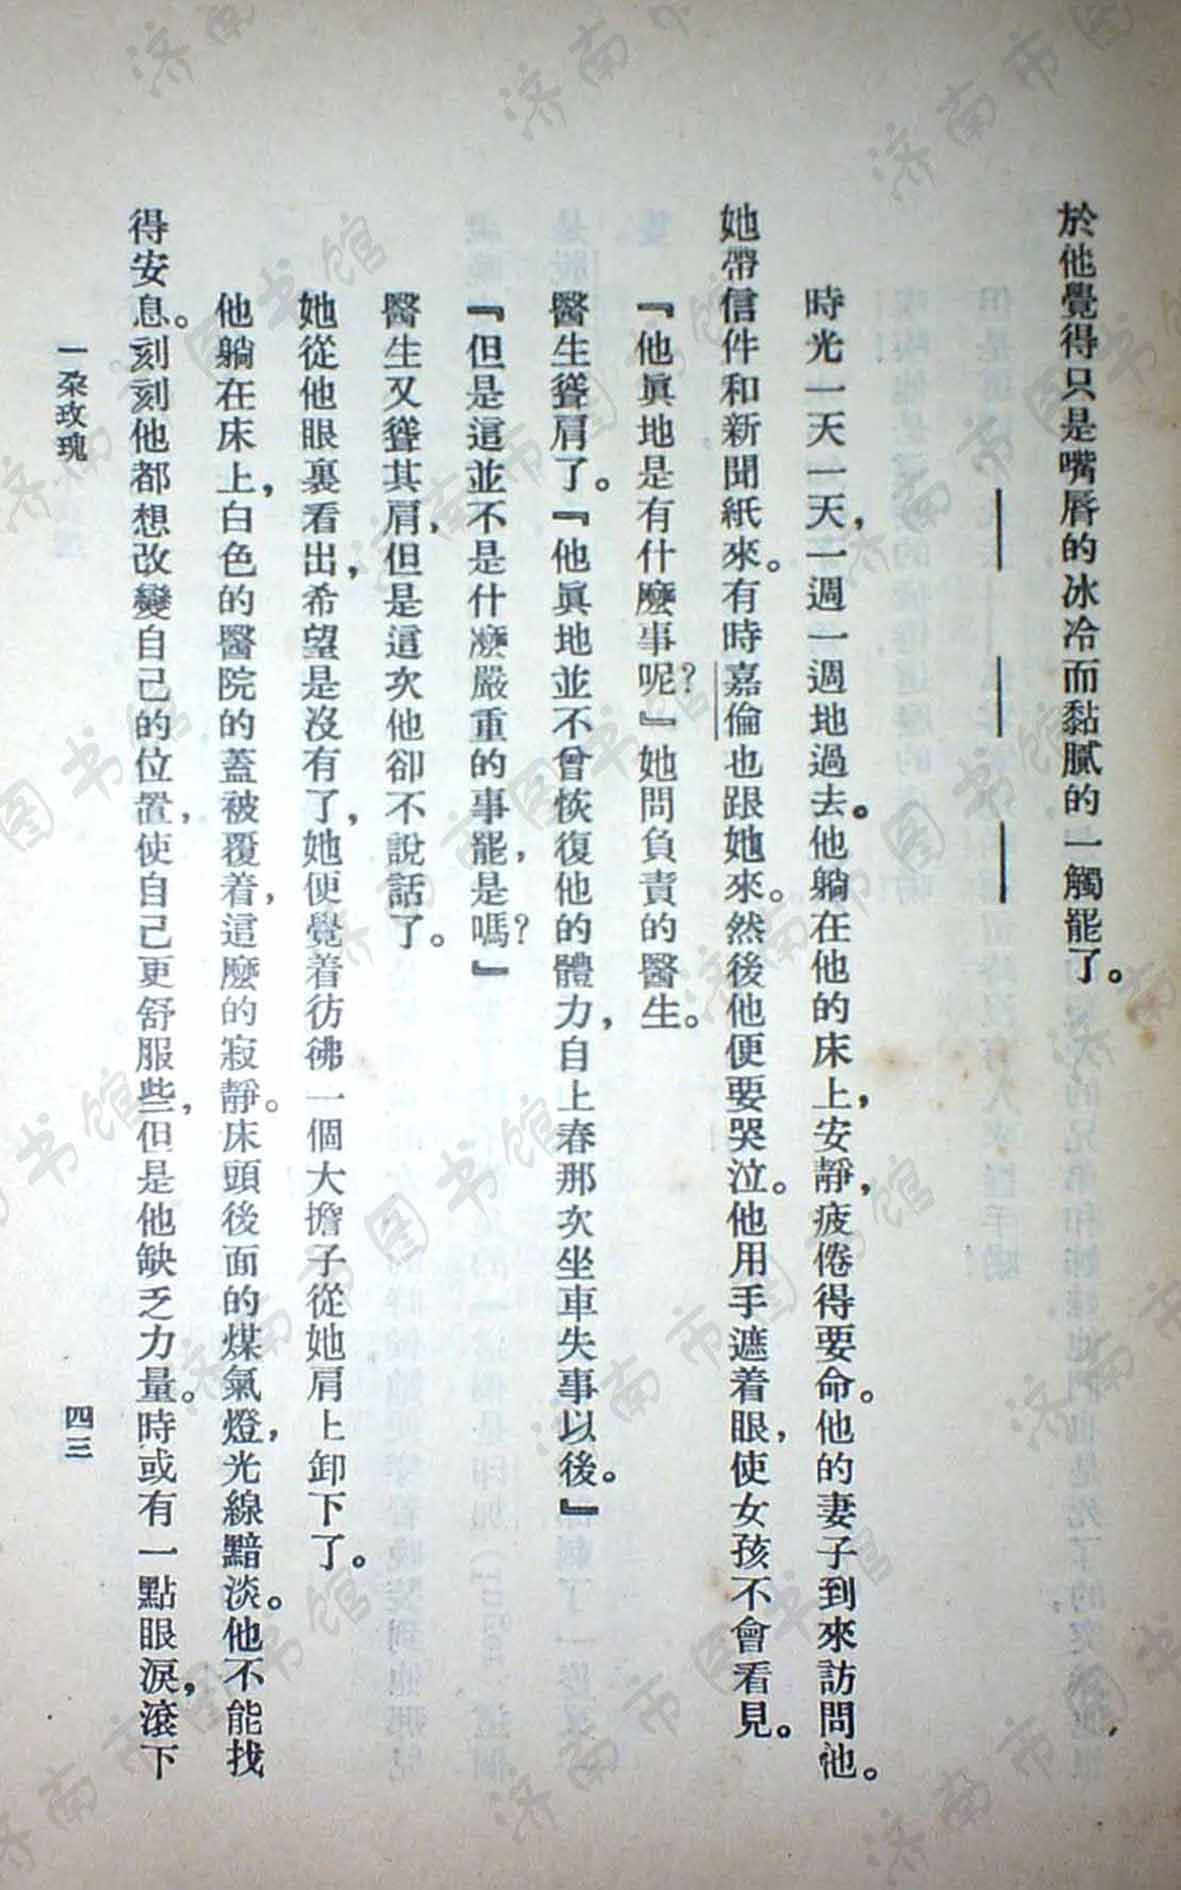 於他覺得只是嘴唇的冰冷而黏膩的一觸罷了。
———
時光一天一天，一週一週地過去。他躺在他的床上，安靜，疲倦得要命。他的妻子到來訪問他。
她帶信件和新聞紙來。有時嘉倫也跟她來。然後他便要哭泣。他用手遮着眼，使女孩不會看見。
『他眞地是有什麼事呢？』她問負責的醫生。
醫生聳肩了。『他眞地並不曾恢復他的體力，自上春那次坐車失事以後。』
『但是這並不是什麼嚴重的事罷，是嗎？』
醫生又聳其肩，但是這次他卻不說話了。
她從他眼裏看出，希望是沒有了，她便覺着彷彿一個大擔子從她肩上卸下了。
他躺在床上，白色的醫院的蓋被覆着，這麼的寂靜。床頭後面的煤氣燈，光線黯淡。他不能找
得安息。刻刻他都想改變自己的位置，使自己更舒服些，但是他缺乏力量。時或有一點眼淚，滾下
一朶玫瑰
四三
济南市图书馆